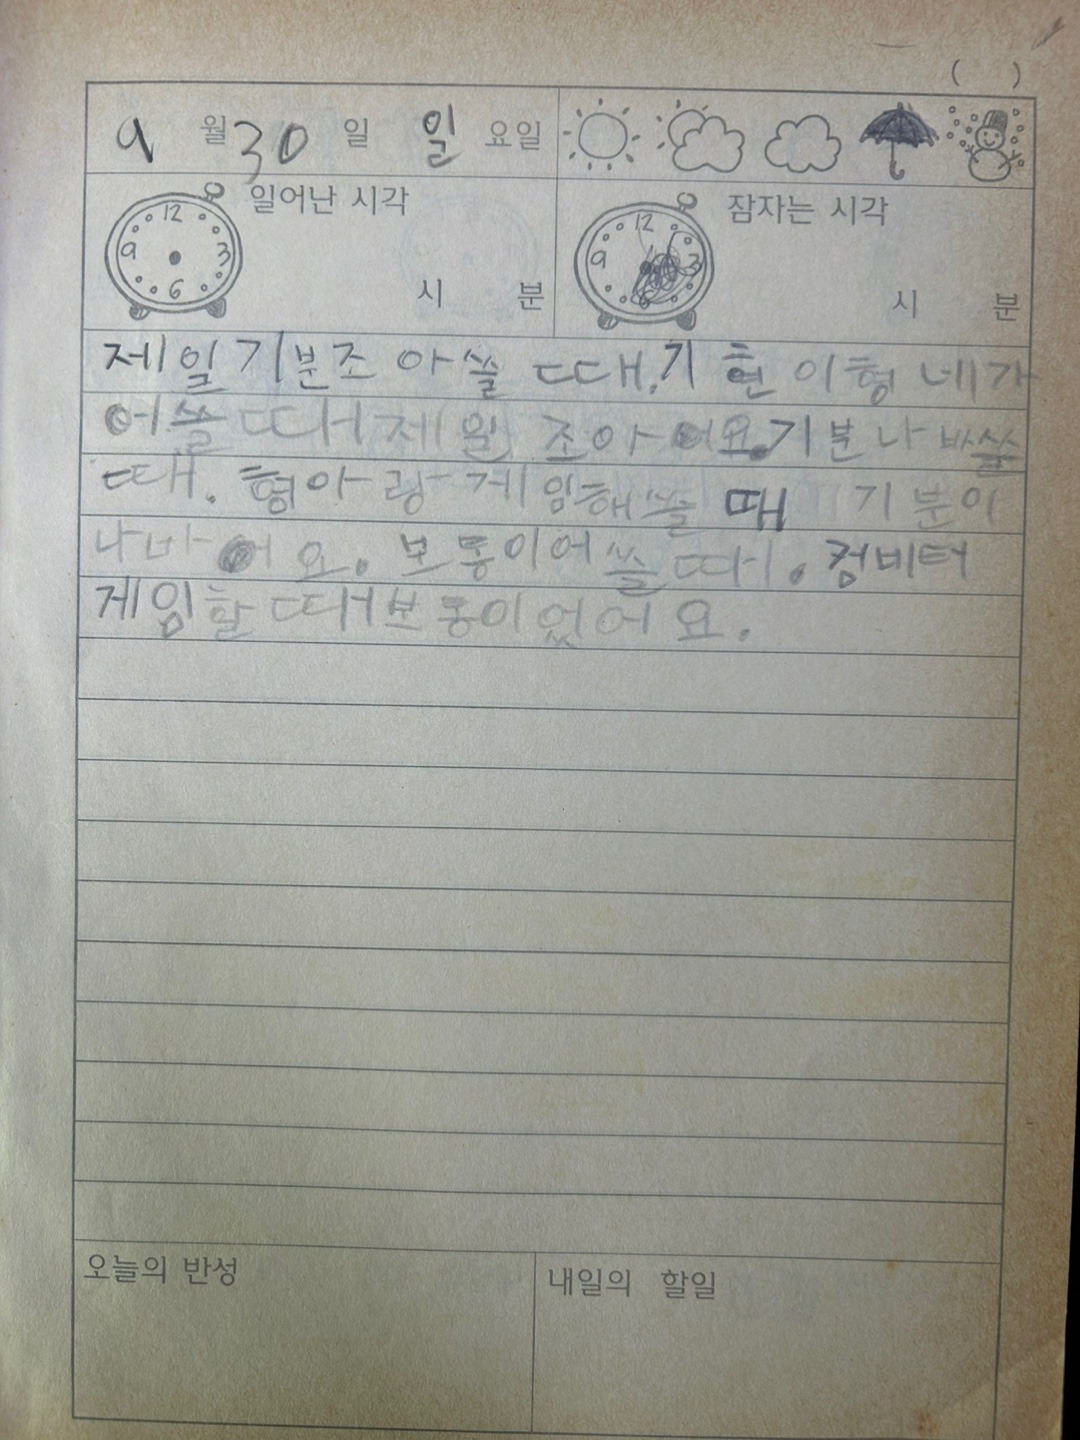 ( )
9 월 30 일 일 요일
일어난 시각
12
9 3
6
시 분
잠자는 시각
12
9 3
시 분
제일기분조 아쓸 때,기 현 이형 네가
어쓸 때제일 조아 어요.기분나바쓸
때. 형아랑게임해쓸 때 기분이
나바어요. 보통이어쓸때. 컴비터
게임할 때보통이었어요.
오늘의 반성
내일의 할일